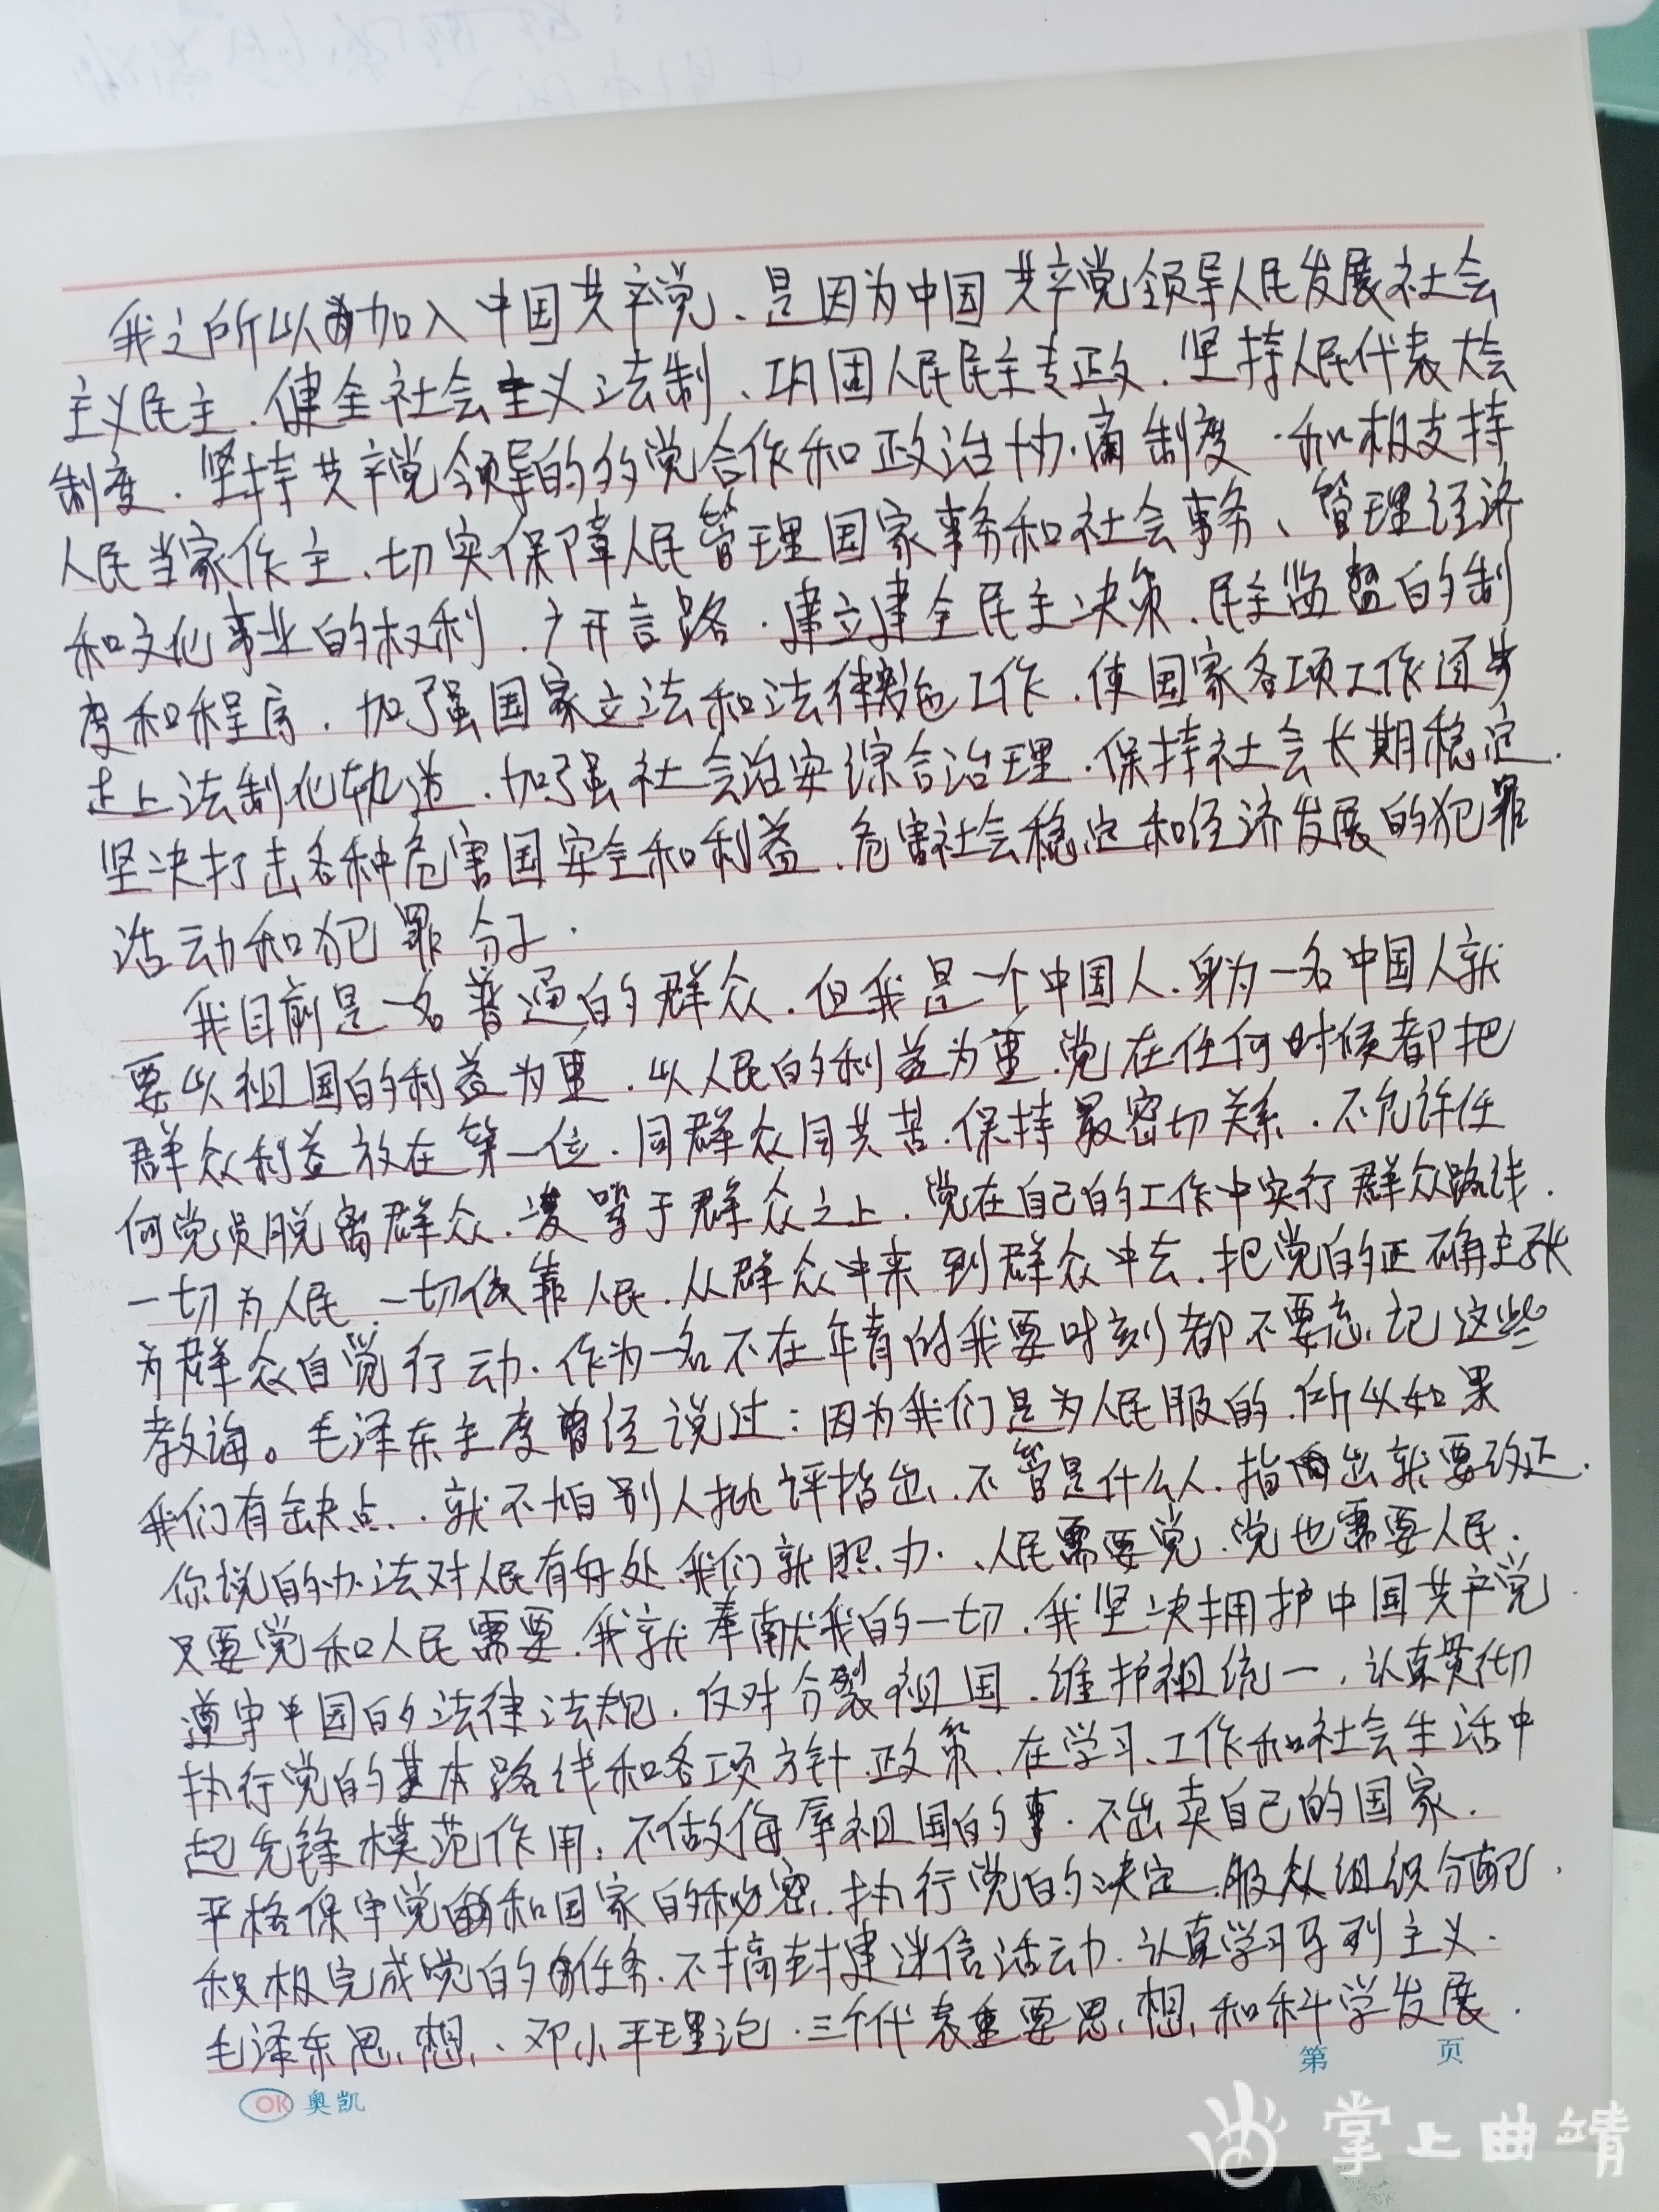 我之所以加入中国共产党、是因为中国共产党领导人民发展社会
主义民主.健全社会主义法制、巩固人民民主专政.坚持人民代表大会
制度.坚持共产党领导的多党合作和政治协商制度.和极支持
人民当家作主、切实保障人民管理国家事务和社会事务、管理经济
和文化事业的权利.广开言路.建立建全民主决策、民主监督的制
度和程序.加强国家立法和法律工作.使国家各项工作逐步
走上法制化轨道.加强社会治安综合治理.保持社会长期稳定.
坚决打击各种危害国安全和利益.危害社会稳定和经济发展的犯罪
活动和犯罪分子.
我目前是一名普通的群众.但我是一个中国人.身为一名中国人就
要以祖国的利益为重.以人民的利益为重.党在任何时候都把
群众利益放在第一位.同群众同共苦.保持最密切关系.不允许任
何党员脱离群众.凌驾于群众之上.党在自己的工作中实行群众路线.
一切为人民.一切依靠人民.从群众中来到群众中去.把党的正确主张
为群众自觉行动.作为一名不在年青的我要时刻都不要忘记这些
教诲。毛泽东主席曾经说过:因为我们是为人民服的.所以如果
我们有缺点.就不怕别人批评指出.不管是什么人.指出就要改正.
你说的办法对人民有好处.我们就照办.、人民需要党.党也需要人民.
只要党和人民需要.我就奉献我的一切.我坚决拥护中国共产党
遵守中国的法律法规.反对分裂祖国.维护祖统一.认真贯彻
执行党的基本路线和各项方针.政策、在学习、工作和社会生活中
起先锋模范作用.不做侮辱祖国的事.不出卖自己的国家.
严格保守党和国家的秘密.执行党的决定.服从组织分配.
积极完成党的任务.不搞封建迷信活动.认真学习马列主义.
毛泽东思想、邓小平理论.三个代表重要思想和科学发展.
第 页
OK 奥凯
掌上曲靖